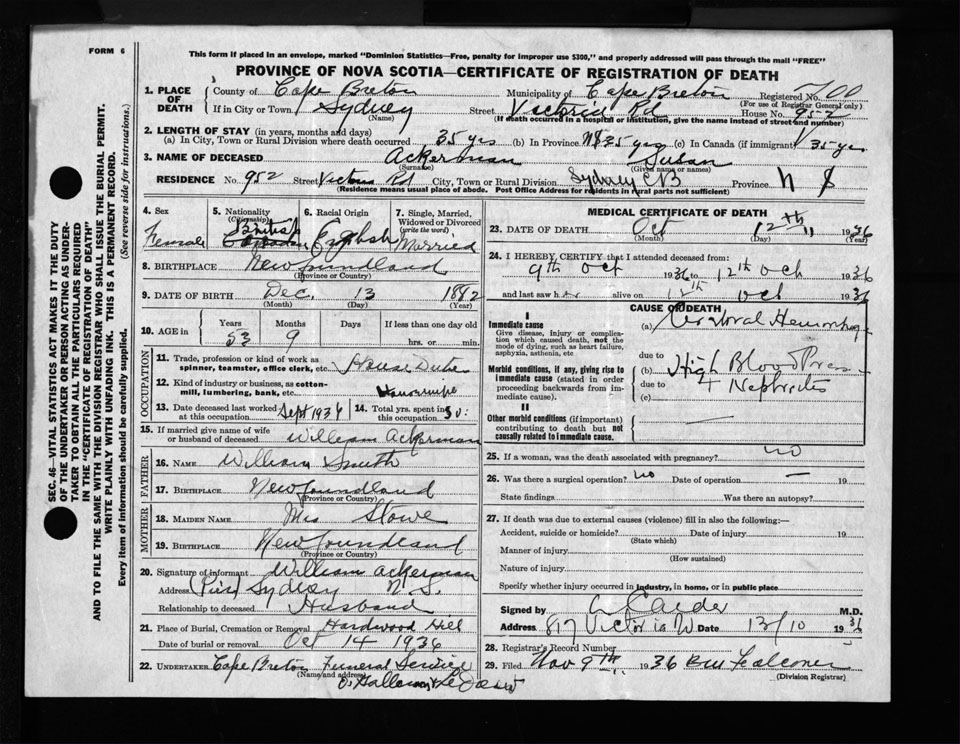 FORM 6
This form if placed in an envelope, marked "Dominion Statistics—Free, penalty for improper use $300," and properly addressed will pass through the mail "FREE"
PROVINCE OF NOVA SCOTIA—CERTIFICATE OF REGISTRATION OF DEATH
SEC. 46—VITAL STATISTICS ACT MAKES IT THE DUTY
OF THE UNDERTAKER OR PERSON ACTING AS UNDER-
TAKER TO OBTAIN ALL THE PARTICULARS REQUIRED
IN THE "CERTIFICATE OF REGISTRATION OF DEATH"
AND TO FILE THE SAME WITH THE DIVISION REGISTRAR WHO SHALL ISSUE THE BURIAL PERMIT.
WRITE PLAINLY WITH UNFADING INK. THIS IS A PERMANENT RECORD.
Every item of information should be carefully supplied. (See reverse side for instructions.)
1. PLACE OF DEATH County of Cape Breton Municipality of Cape Breton Registered No. 700
(For use of Registrar General only)
If in City or Town Sydney Street Victoria Rd House No. 952
(Name) (If death occurred in a hospital or institution, give the name instead of street and number)
2. LENGTH OF STAY (in years, months and days)
(a) In City, Town or Rural Division where death occurred 35 yrs (b) In Province NS 35 yrs (c) In Canada (if immigrant) 35 yrs
3. NAME OF DECEASED Ackerman Susan
(Surname) (Given name or names)
RESIDENCE No. 952 Street Victoria Rd City, Town or Rural Division Sydney CB Province N S
(Residence means usual place of abode. Post Office Address for residents in rural parts not sufficient)
4. Sex Female
5. Nationality (Citizenship) British
6. Racial Origin English
7. Single, Married, Widowed or Divorced (write the word) Married
8. BIRTHPLACE Newfoundland
(Province or Country)
9. DATE OF BIRTH Dec. 13 1882
(Month) (Day) (Year)
10. AGE in Years Months Days If less than one day old
53 9 hrs. or min.
OCCUPATION
11. Trade, profession or kind of work as spinner, teamster, office clerk, etc. House Duties
12. Kind of industry or business, as cotton-mill, lumbering, bank, etc. Housewife
13. Date deceased last worked at this occupation Sept 1936
14. Total yrs. spent in this occupation 30
15. If married give name of wife or husband of deceased William Ackerman
FATHER
16. NAME William Smith
17. BIRTHPLACE Newfoundland
(Province or Country)
MOTHER
18. MAIDEN NAME Miss Stowe
19. BIRTHPLACE Newfoundland
(Province or Country)
20. Signature of informant William Ackerman
Address Sydney N.S.
Relationship to deceased Husband
21. Place of Burial, Cremation or Removal Hardwood Hill
Date of burial or removal Oct 14 1936
22. UNDERTAKER Cape Breton Funeral Service
(Name and address)
MEDICAL CERTIFICATE OF DEATH
23. DATE OF DEATH Oct 12th 1936
(Month) (Day) (Year)
24. I HEREBY CERTIFY that I attended deceased from:
9th Oct 1936 to 12th Oct 1936
and last saw her alive on 12th Oct 1936
CAUSE OF DEATH
I
Immediate cause
Give disease, injury or complication which caused death, not the mode of dying, such as heart failure, asphyxia, asthenia, etc
(a) Cerebral Hemorrhage
due to
Morbid conditions, if any, giving rise to immediate cause (stated in order proceeding backwards from immediate cause).
(b) High Blood Press
due to
(c) + Nephritis
II
Other morbid conditions (if important) contributing to death but not causally related to immediate cause.
25. If a woman, was the death associated with pregnancy? no
26. Was there a surgical operation? no Date of operation — 19
State findings Was there an autopsy?
27. If death was due to external causes (violence) fill in also the following:—
Accident, suicide or homicide? Date of injury 19
(State which)
Manner of injury
(How sustained)
Nature of injury
Specify whether injury occurred in industry, in home, or in public place
Signed by M.D.
Address 817 Victoria Date 13/10 1936
28. Registrar's Record Number
29. Filed Nov 9th 1936 Falconer
(Division Registrar)